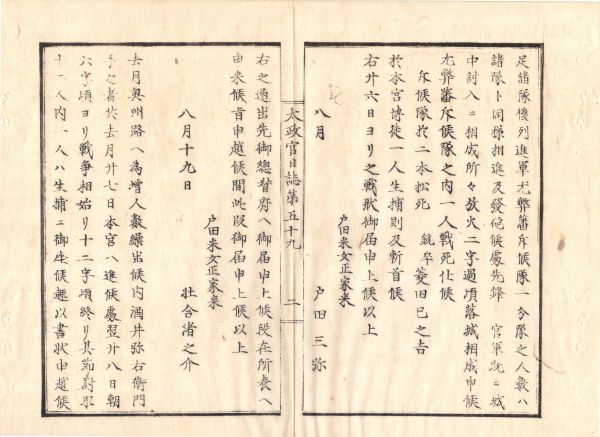 足諸隊後列進軍尤弊藩斥候隊一分隊之人数ハ
諸隊ト同様相進及發砲候處先鋒　官軍既ニ城
中討入ニ相成所々放火二字過頃落城相成申候
尤弊藩斥候隊之内一人戦死仕候
斥候隊於二本松死　銃卒　菱田巳之吉
於本宮博徒一人生捕則及斬首候
右廿六日ヨリ之戦状御届申上候以上
戸田采女正家来
八月　戸田三弥
太政官日誌第五十九　二
右之通出先御總督府ヘ御届申上候段在所表ヘ
由来候旨申越候間此段御届申上候以上
戸田采女正家来
八月十九日　壮合渚之介
去月奥州路ヘ為増人数繰出候内酒井弥右衛門
手之者共去月廿七日本宮ヘ進候處翌廿八日朝
六字頃ヨリ戦争相始リ十二字頃終リ其節討取
十二人内一人ハ生捕ニ御座候趣以書状申越候